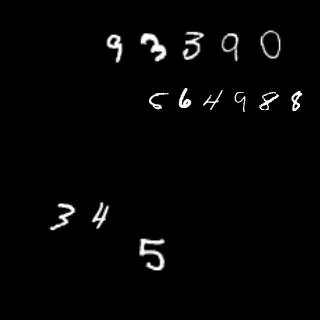 93390
564988
34
5